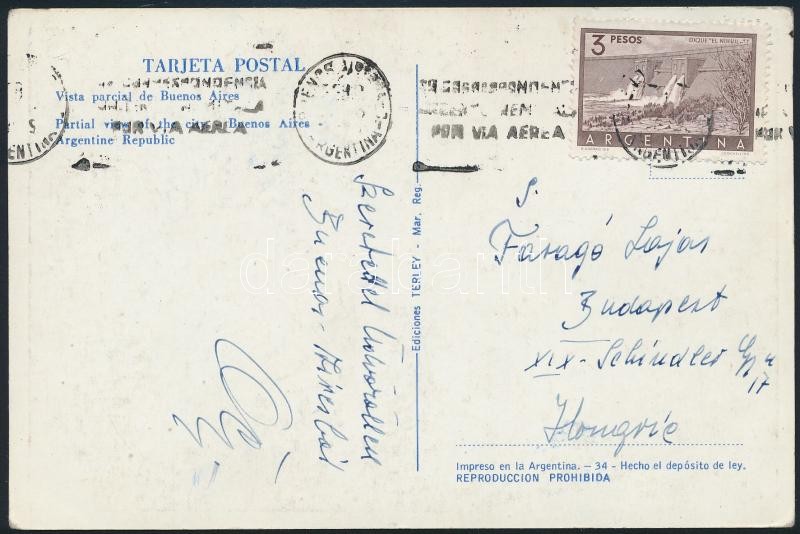 TARJETA POSTAL
Vista parcial de Buenos Aires
Partial view of the city - Buenos Aires -
Argentine Republic
POR VIA AEREA
BUENOS AIRES
ARGENTINA
CORRESPONDENCIA
POR VIA AEREA
3 PESOS
DIQUE "EL NIHUIL"
ARGENTINA
Szeretettel üdvözöllek
Buenos-Airesből
Ediciones TERLEY - Mar. Reg.
S.
Faragó Lajos
Budapest
XIX - Schindler Gy u
17
Hongrie
Impreso en la Argentina. — 34 - Hecho el depósito de ley.
REPRODUCCION PROHIBIDA
darabanth